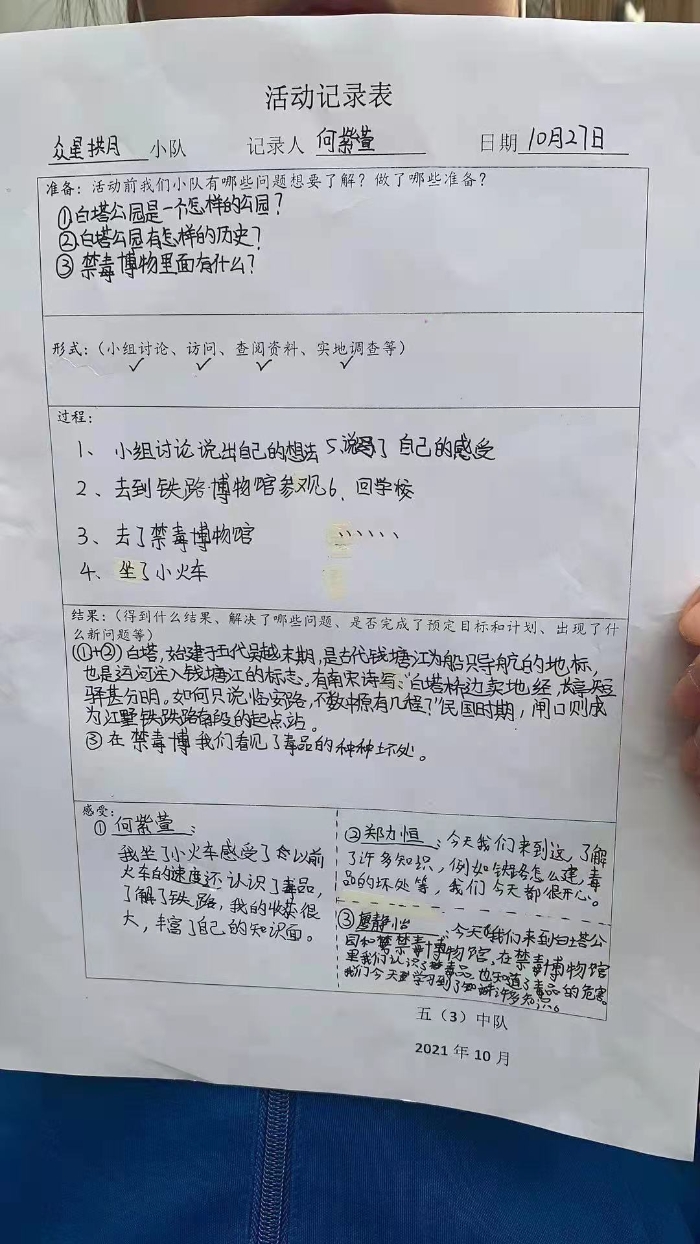 活动记录表
众星拱月 小队 记录人 何紫萱 日期 10月27日
准备：活动前我们小队有哪些问题想要了解？做了哪些准备？
①白塔公园是一个怎样的公园？
②白塔公园有怎样的历史？
③禁毒博物里面有什么？
形式：（小组讨论、访问、查阅资料、实地调查等）
✓ ✓ ✓ ✓
过程：
1、小组讨论说出自己的想法 5、说写了自己的感受
2、去到铁路博物馆参观 6、回学校
3、去了禁毒博物馆 、、、、、、
4、坐了小火车
结果：（得到什么结果、解决了哪些问题、是否完成了预定目标和计划、出现了什
么新问题等）
(①+②) 白塔，始建于五代吴越末期，是古代钱塘江为船只导航的地标，
也是运河注入钱塘江的标志。有南宋诗写："白塔桥边卖地经，长亭短
驿甚分明。如何只说临安路，不数中原有几程？"民国时期，闸口则成
为江墅铁路的起点站。
③在禁毒博我们看见了毒品的种种坏处。
感受：
①何紫萱：
我坐了小火车感受了以前
火车的速度还认识了毒品，
了解了铁路，我的收获很
大，丰富了自己的知识面。
②郑力恒：今天我们来到这，了解
了许多知识，例如铁路怎么建，毒
品的坏处等，我们今天都很开心。
③静怡：今天我们来到白塔公
园和禁毒博物馆，在禁毒博物馆
里我们认识了毒品，也知道了毒品的危害。
我们今天学习到了许多知识。
五（3）中队
2021年10月